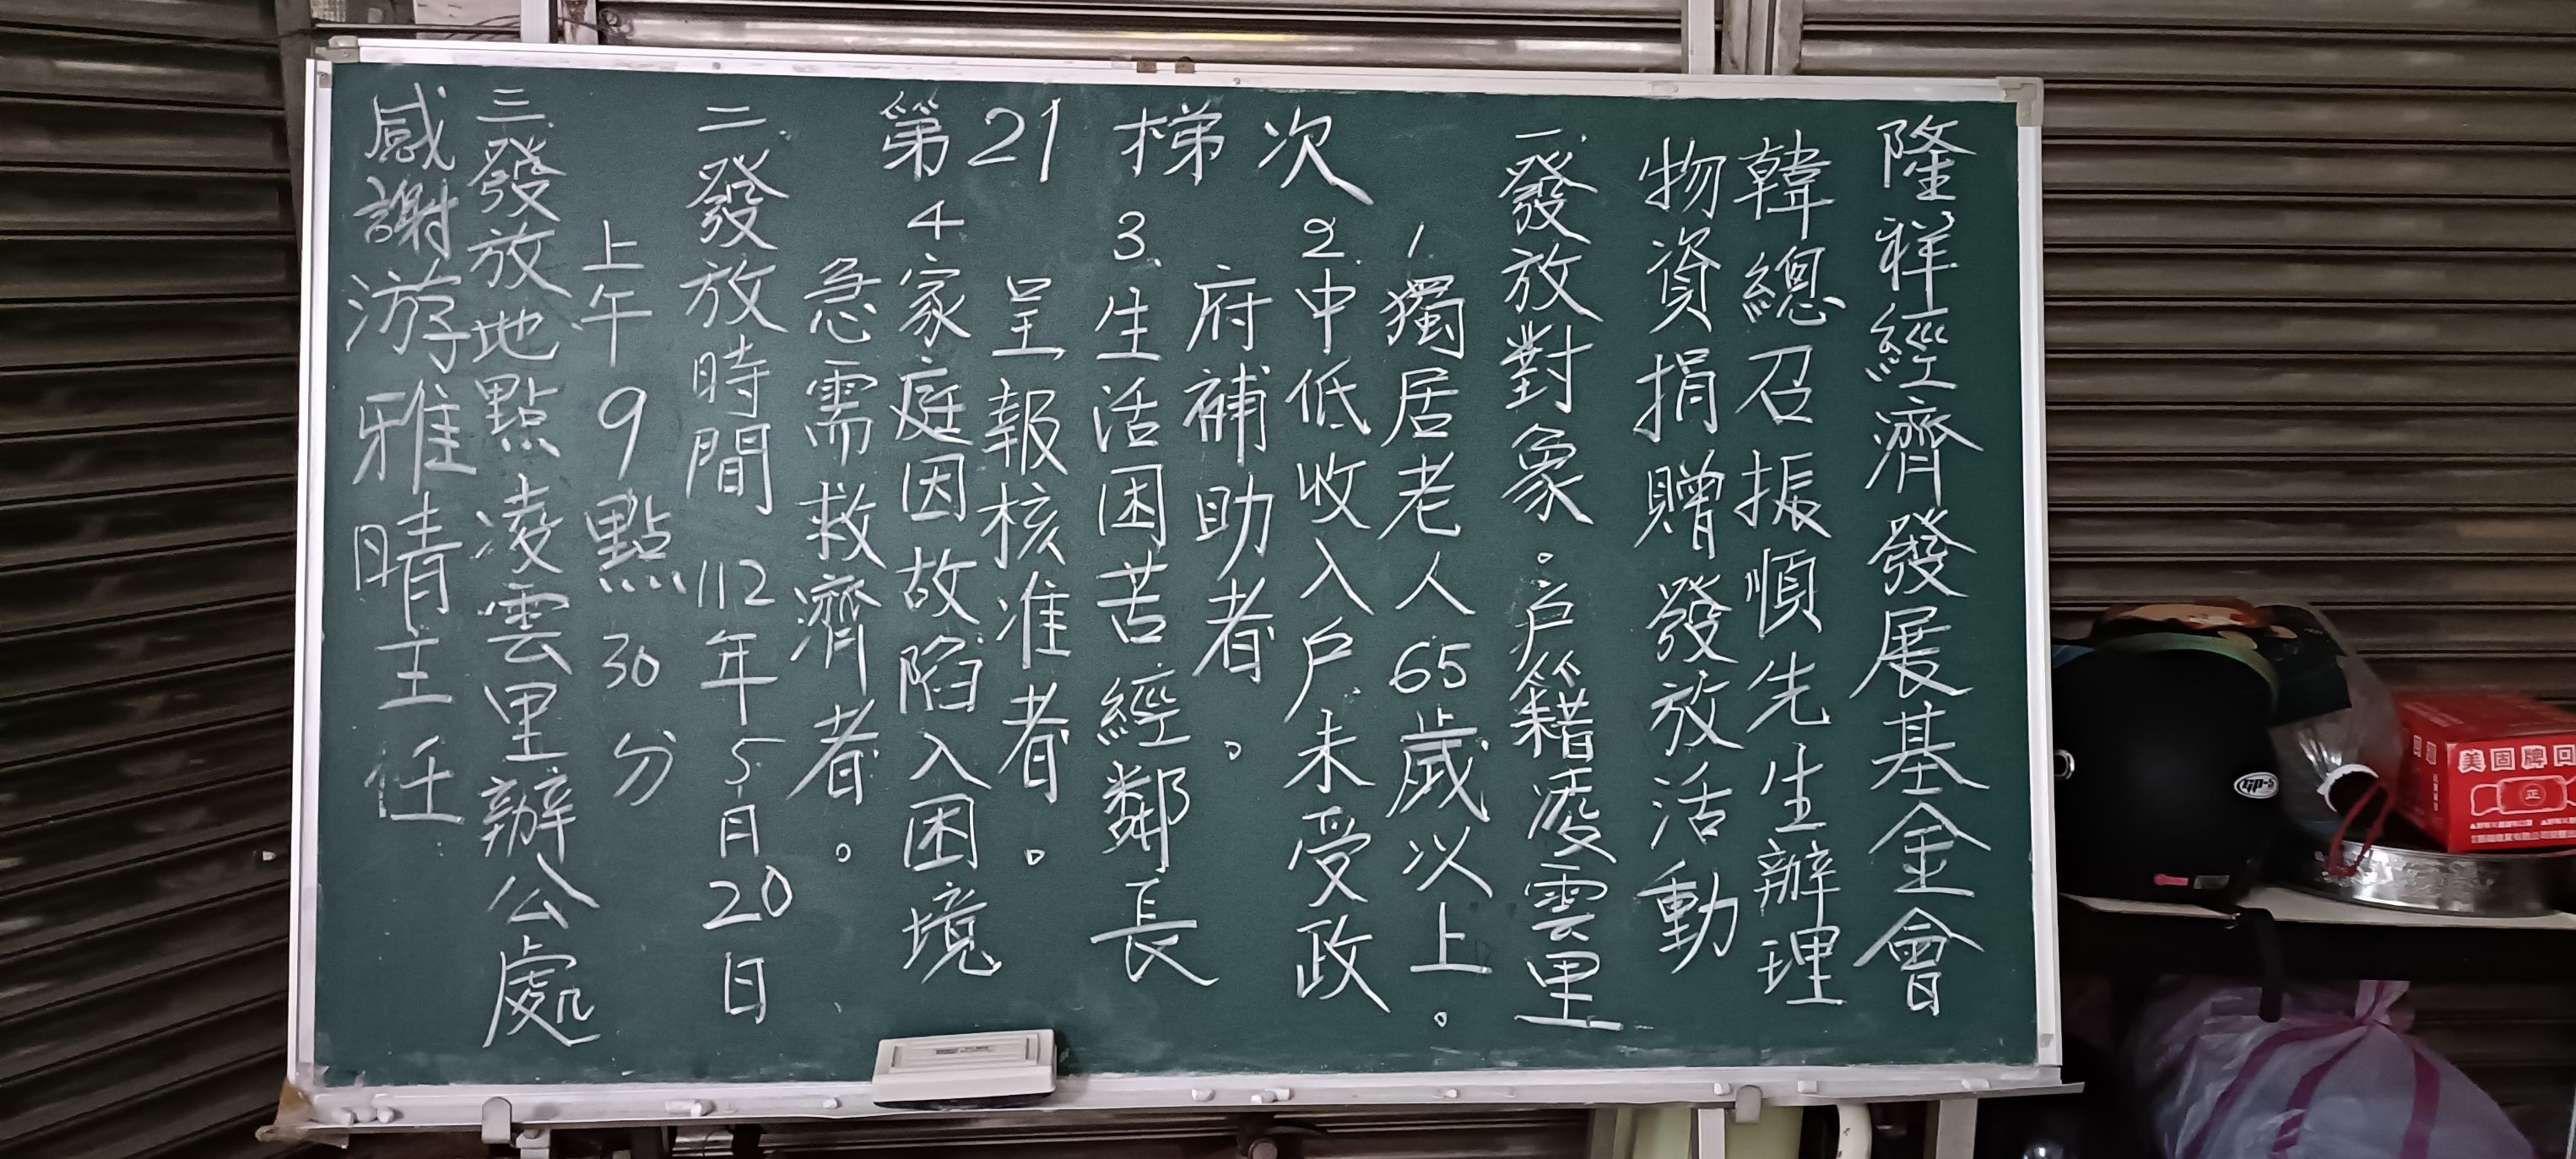 第21梯次
隆祥經濟發展基金會
韓總召振順先生辦理
物資捐贈發放活動
一.發放對象。戶籍凌雲里
1.獨居老人65歲以上。
2.中低收入戶未受政
府補助者。
3.生活困苦經鄰長
呈報核准者。
4.家庭因故陷入困境
急需救濟者。
二.發放時間 112年5月20日
上午9點30分
三.發放地點凌雲里辦公處
感謝游雅晴主任
美固牌回
正